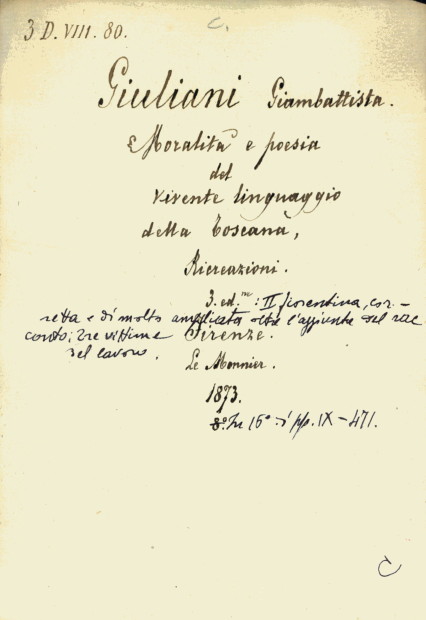 3 D. VIII. 80.
C.
Giuliani Giambattista.
Moralità e poesia
del
vivente linguaggio
della Toscana,
Ricreazioni.
3. ed.ne: II fiorentina, cor-
retta e di molto ampliata oltre l'aggiunta del rac
conto: Tre vittime
del lavoro.
Firenze.
Le Monnier.
1873.
8.° In 16° pp. IX-471.
C